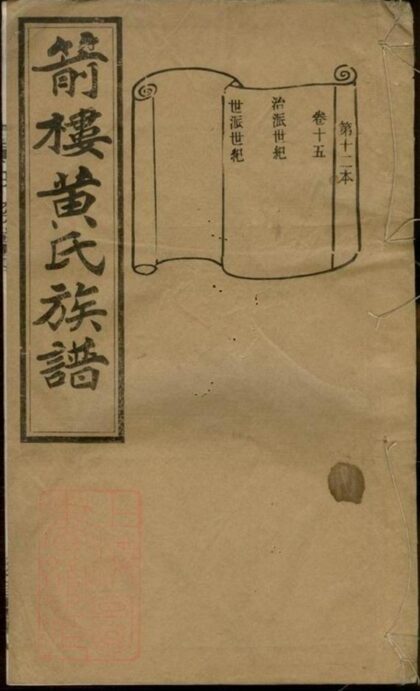 第十二本
卷十五
治派世紀
世派世紀
箭樓黄氏族譜